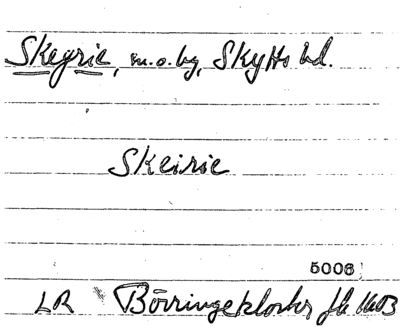 Skegrie, m.o. by, Skytts hd.
Skeirie
5006
LR Börringekloster